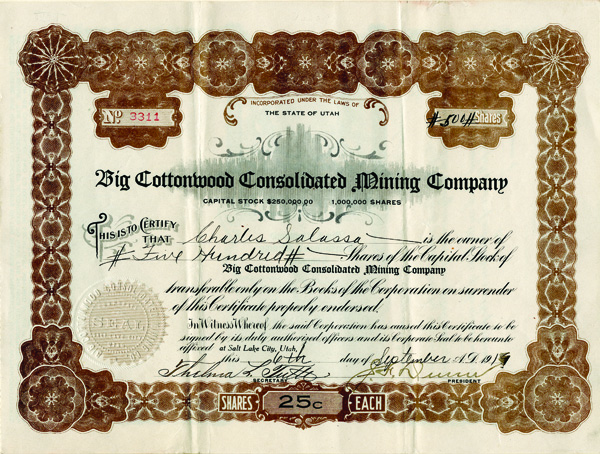 INCORPORATED UNDER THE LAWS OF
THE STATE OF UTAH
No 3311
#500# Shares
Big Cottonwood Consolidated Mining Company
CAPITAL STOCK $250,000.00 1,000,000 SHARES
THIS IS TO CERTIFY THAT Charles Salassa is the owner of
# Five Hundred # Shares of the Capital Stock of
Big Cottonwood Consolidated Mining Company
transferable only on the Books of the Corporation on surrender
of this Certificate properly endorsed.
In Witness Whereof the said Corporation has caused this Certificate to be
signed by its duly authorized officers and its Corporate Seal to be hereunto
affixed at Salt Lake City, Utah,
this 6th day of September A.D. 191
Thelma L.
SECRETARY
PRESIDENT
SEAL
SHARES 25c EACH